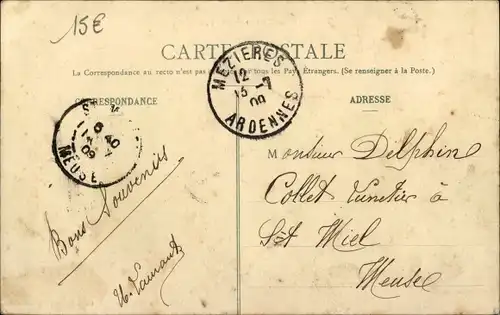 15€
CARTE POSTALE
La Correspondance au recto n'est pas tous les Pays Étrangers. (Se renseigner à la Poste.)
CORRESPONDANCE
ADRESSE
MEZIERES
12
15-7
09
ARDENNES
6 40
09
MEUSE
Monsieur Delphin
Collet à
St Miel
Meuse
Bons Souvenirs